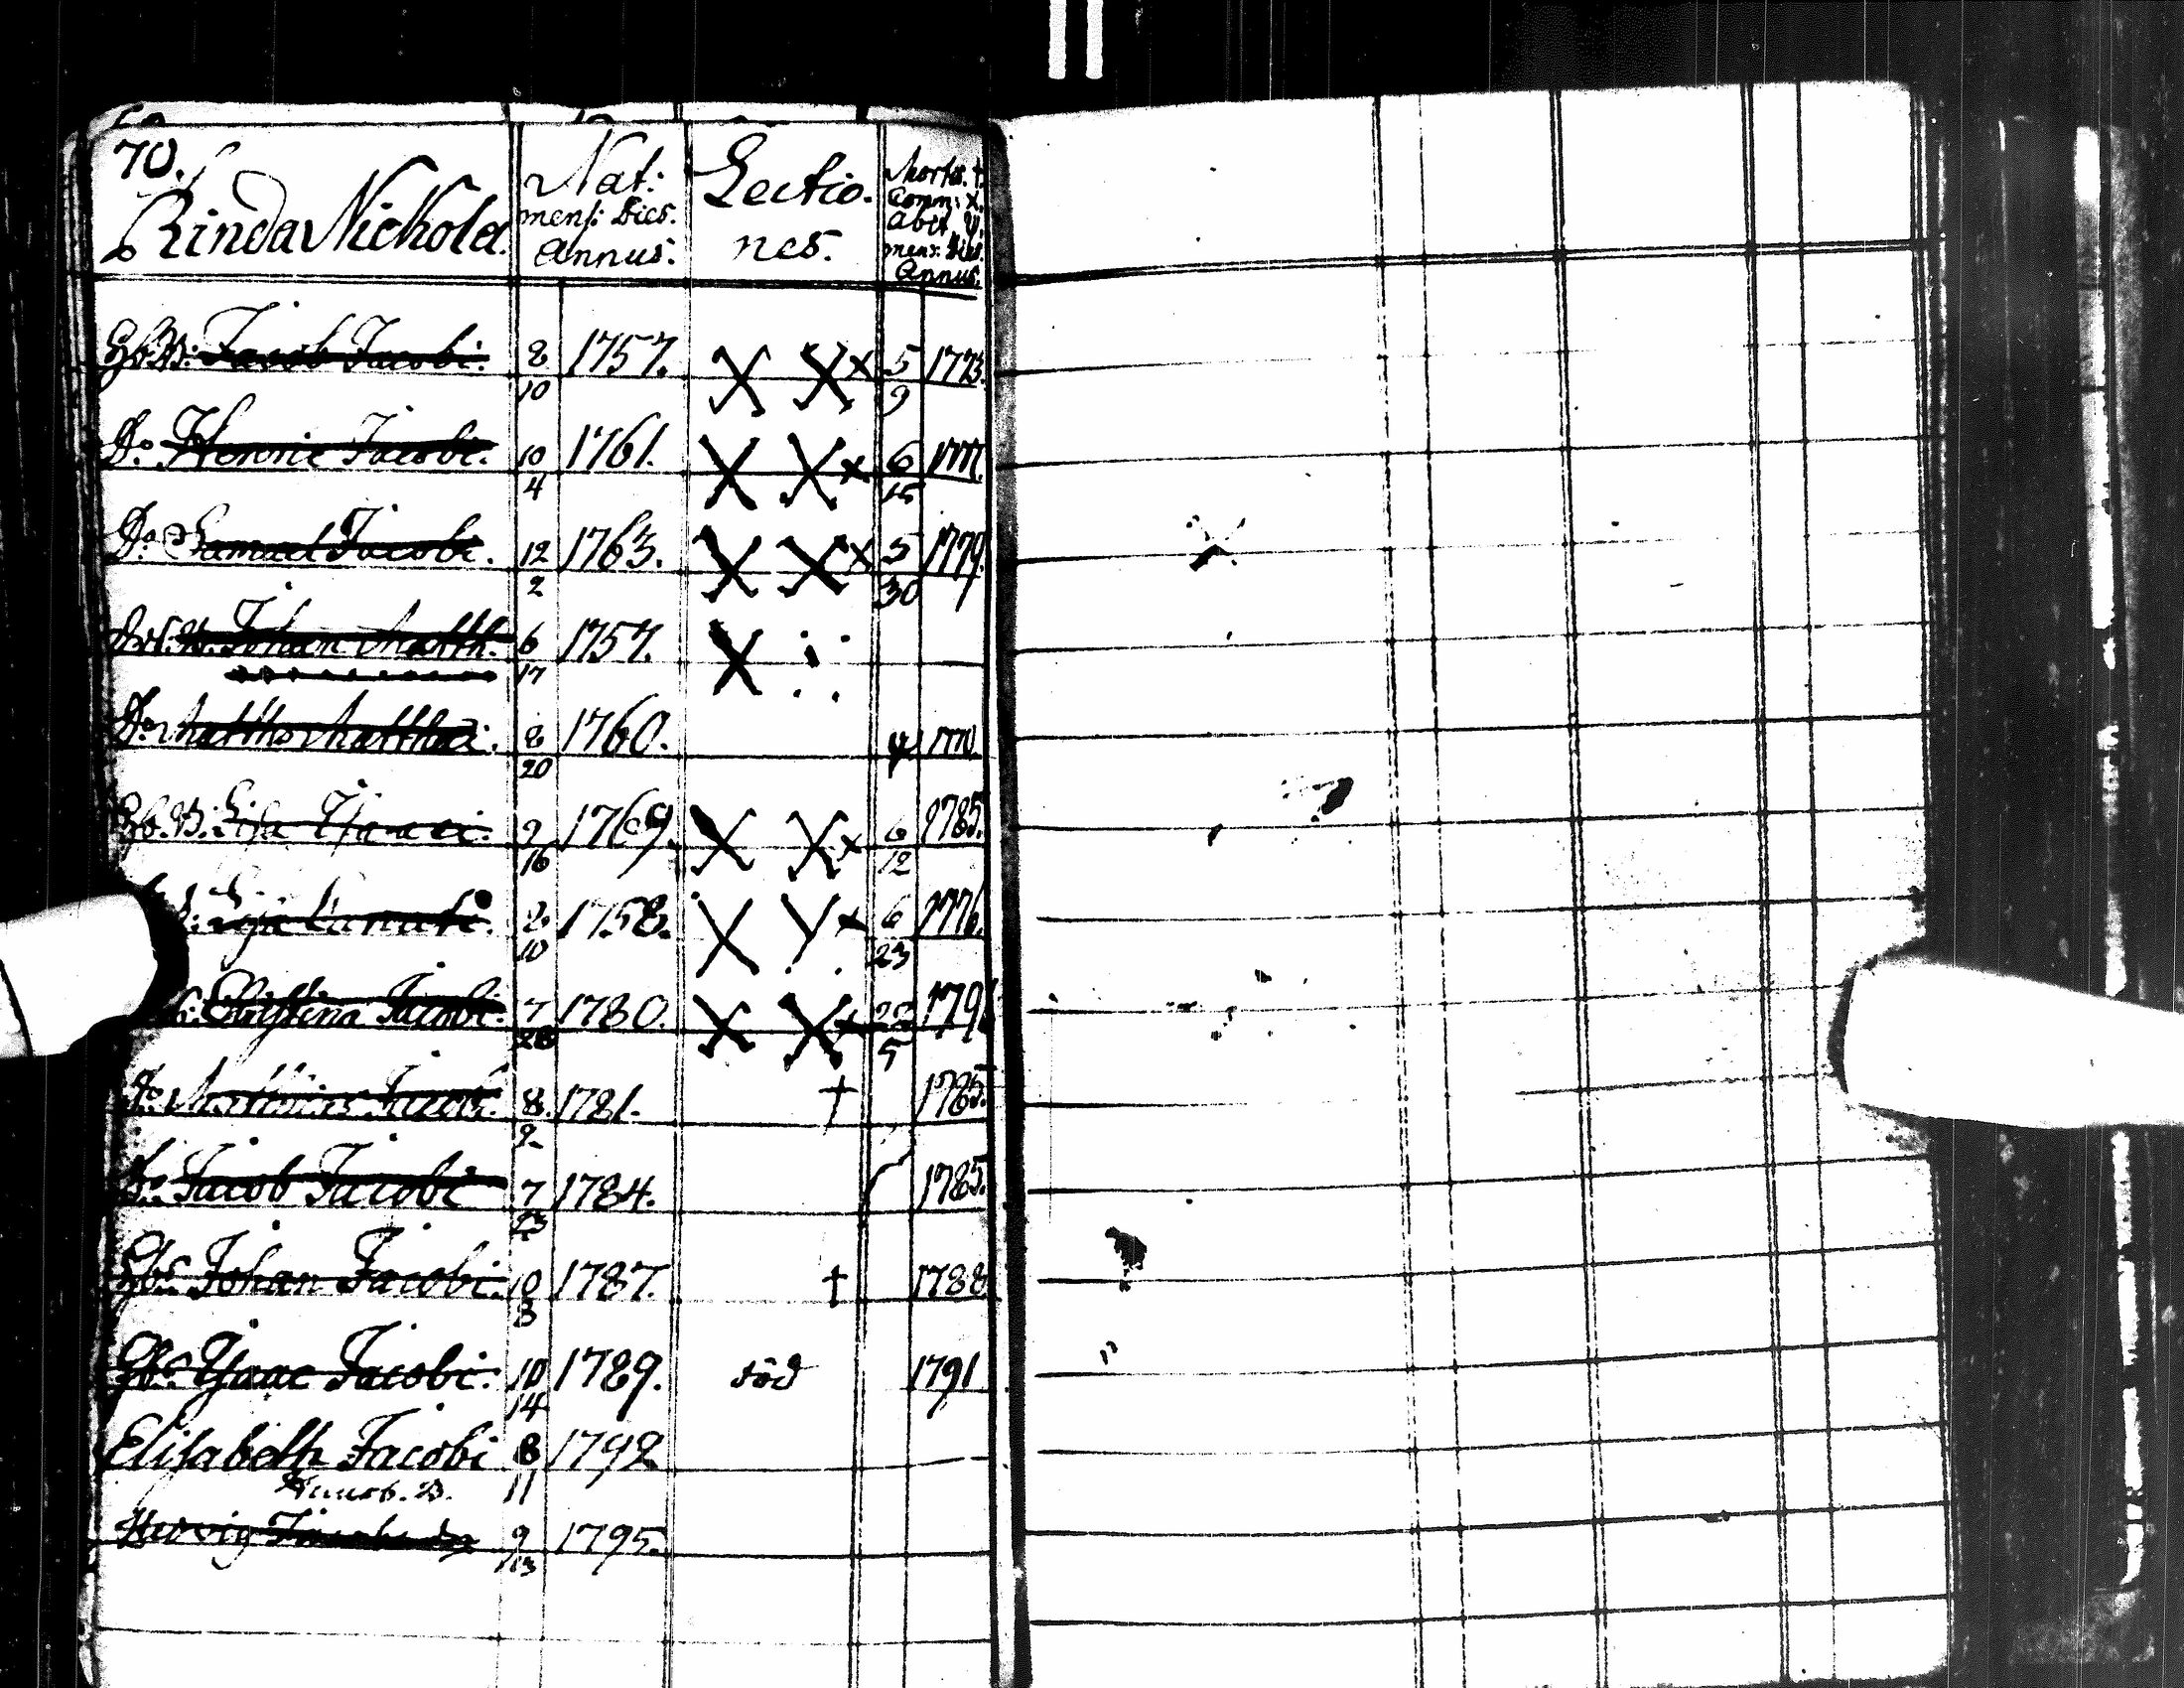 70.
Rinda Nickola.
Nat:
mens: Dies.
Annus.
Lectio-
nes.
Mortes. †.
Comm: X.
Abit ψ.
mens: Dies.
Annus.
Jacob Jacobi. 8 1757. X X x 5 1773.
10 9
Do. Jacobi. 10 1761. X X x 6 1777.
4 15
Do. Samuel Jacobi. 12 1763. X X x 5 1779.
2 30
Johan Matth. 6 1757. X
17
Do. Matths Matthæi. 8 1760. ψ 1770.
20
Lisa Isaaci. 9 1769. X X x 6 1785.
16 12
Lisa 2 1758. X X x 6 1776.
10 23
Christina Jacobi. 7 1780. X X x
28 5
Do. Jacobi. 8. 1781. † 1785.
2
Do. Jacob Jacobi 7 1784. 1785.
23
Johan Jacobi. 10 1787. † 1788
8
Isaac Jacobi. 10 1789. död 1791
14
Elisabeth Jacobi 8 1792
11
Hedvig 9 1795.
13